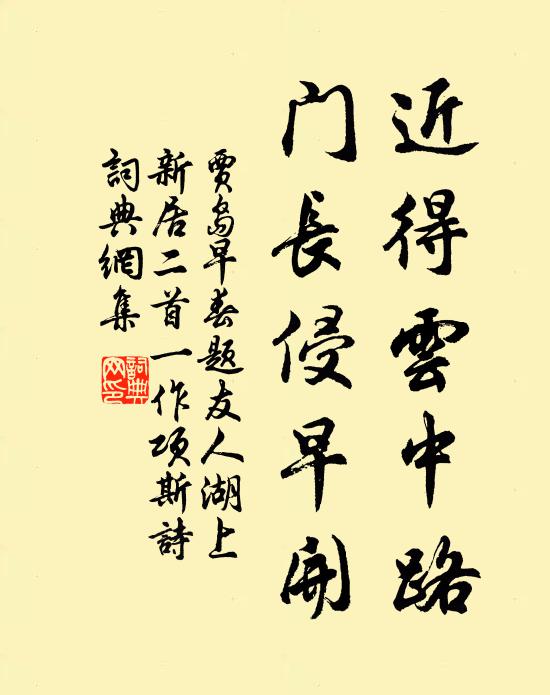 近得雲中路
門長侵早開
賈島早春題友人湖上
新居二首一作項斯詩
詞典網集
詞典
网印